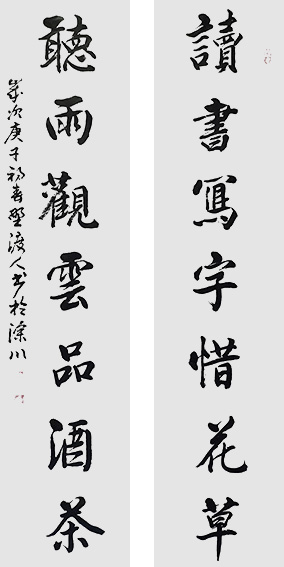 讀書寫字惜花草
聽雨觀雲品酒茶
歲次庚子初春野渡人書於滁川